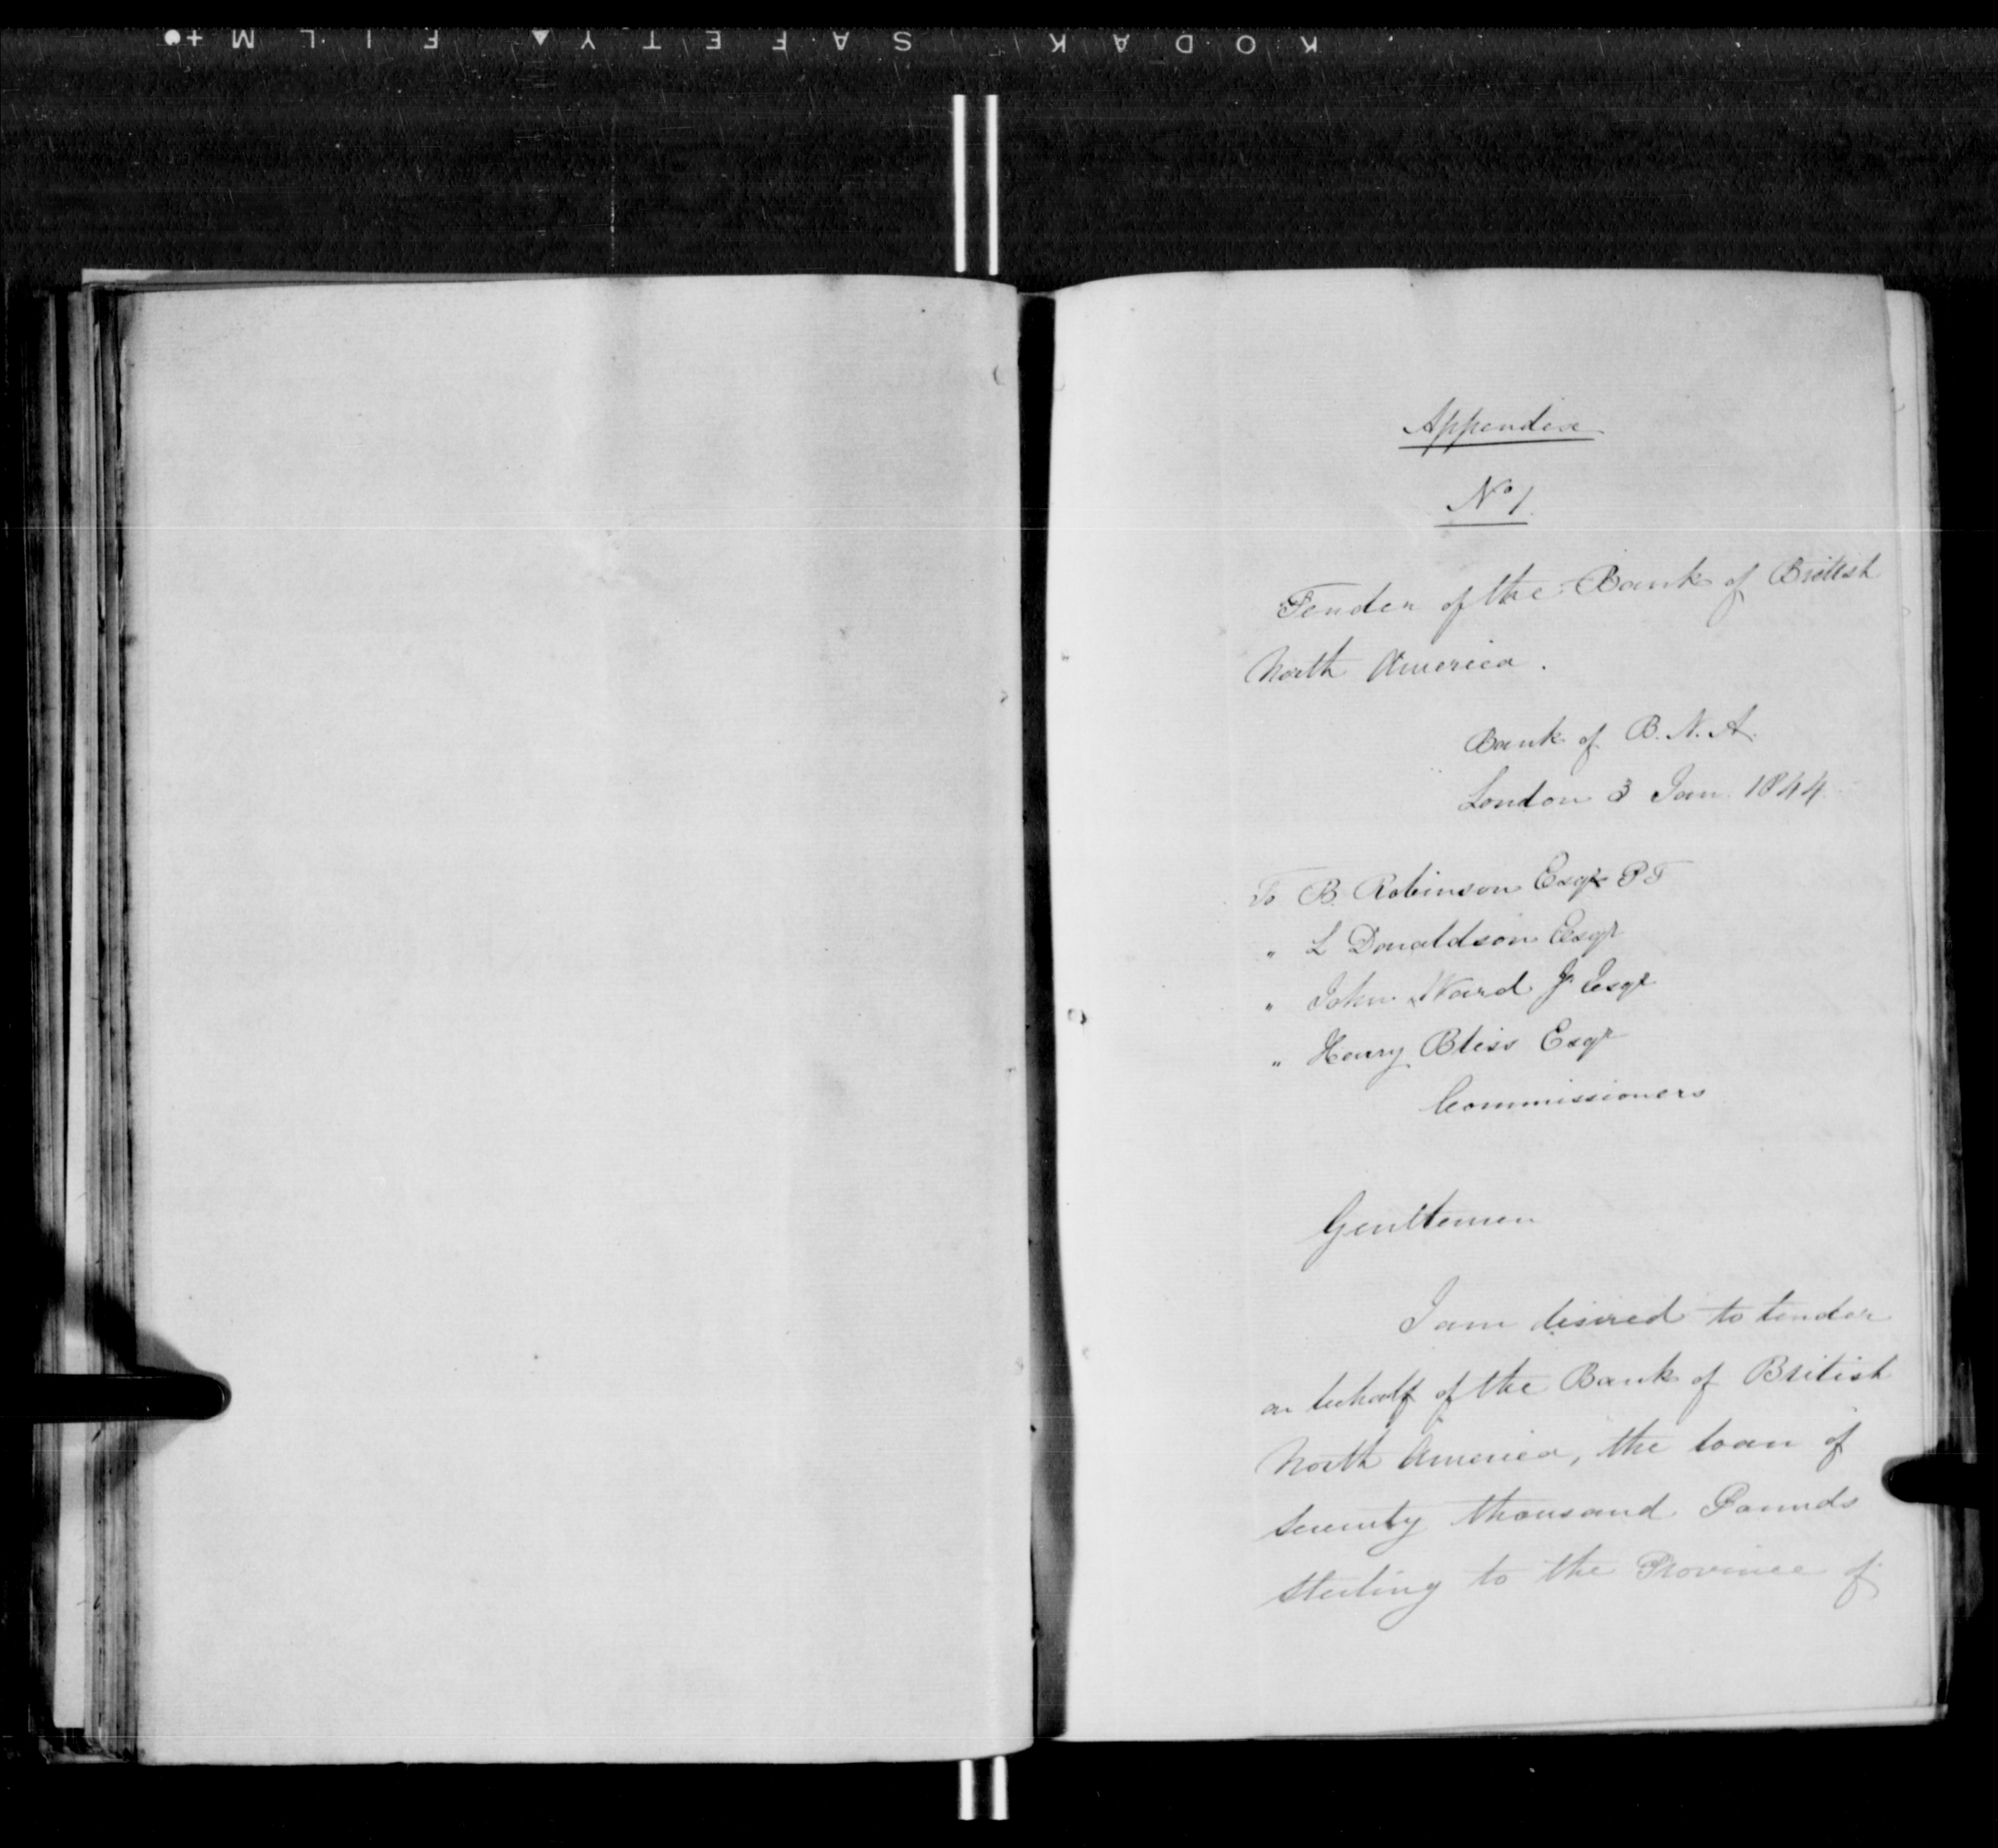 KODAK SAFETY FILM
Appendix
No 1.
Tender of the Bank of British
North America.
Bank of B. N. A.
London 3 Jan 1844
To B. Robinson Esqr P T
" L Donaldson Esqr
" John Ward Jr Esqr
" Henry Bliss Esqr
Commissioners
Gentlemen
I am desired to tender
on behalf of the Bank of British
North America, the loan of
seventy thousand Pounds
sterling to the Province of